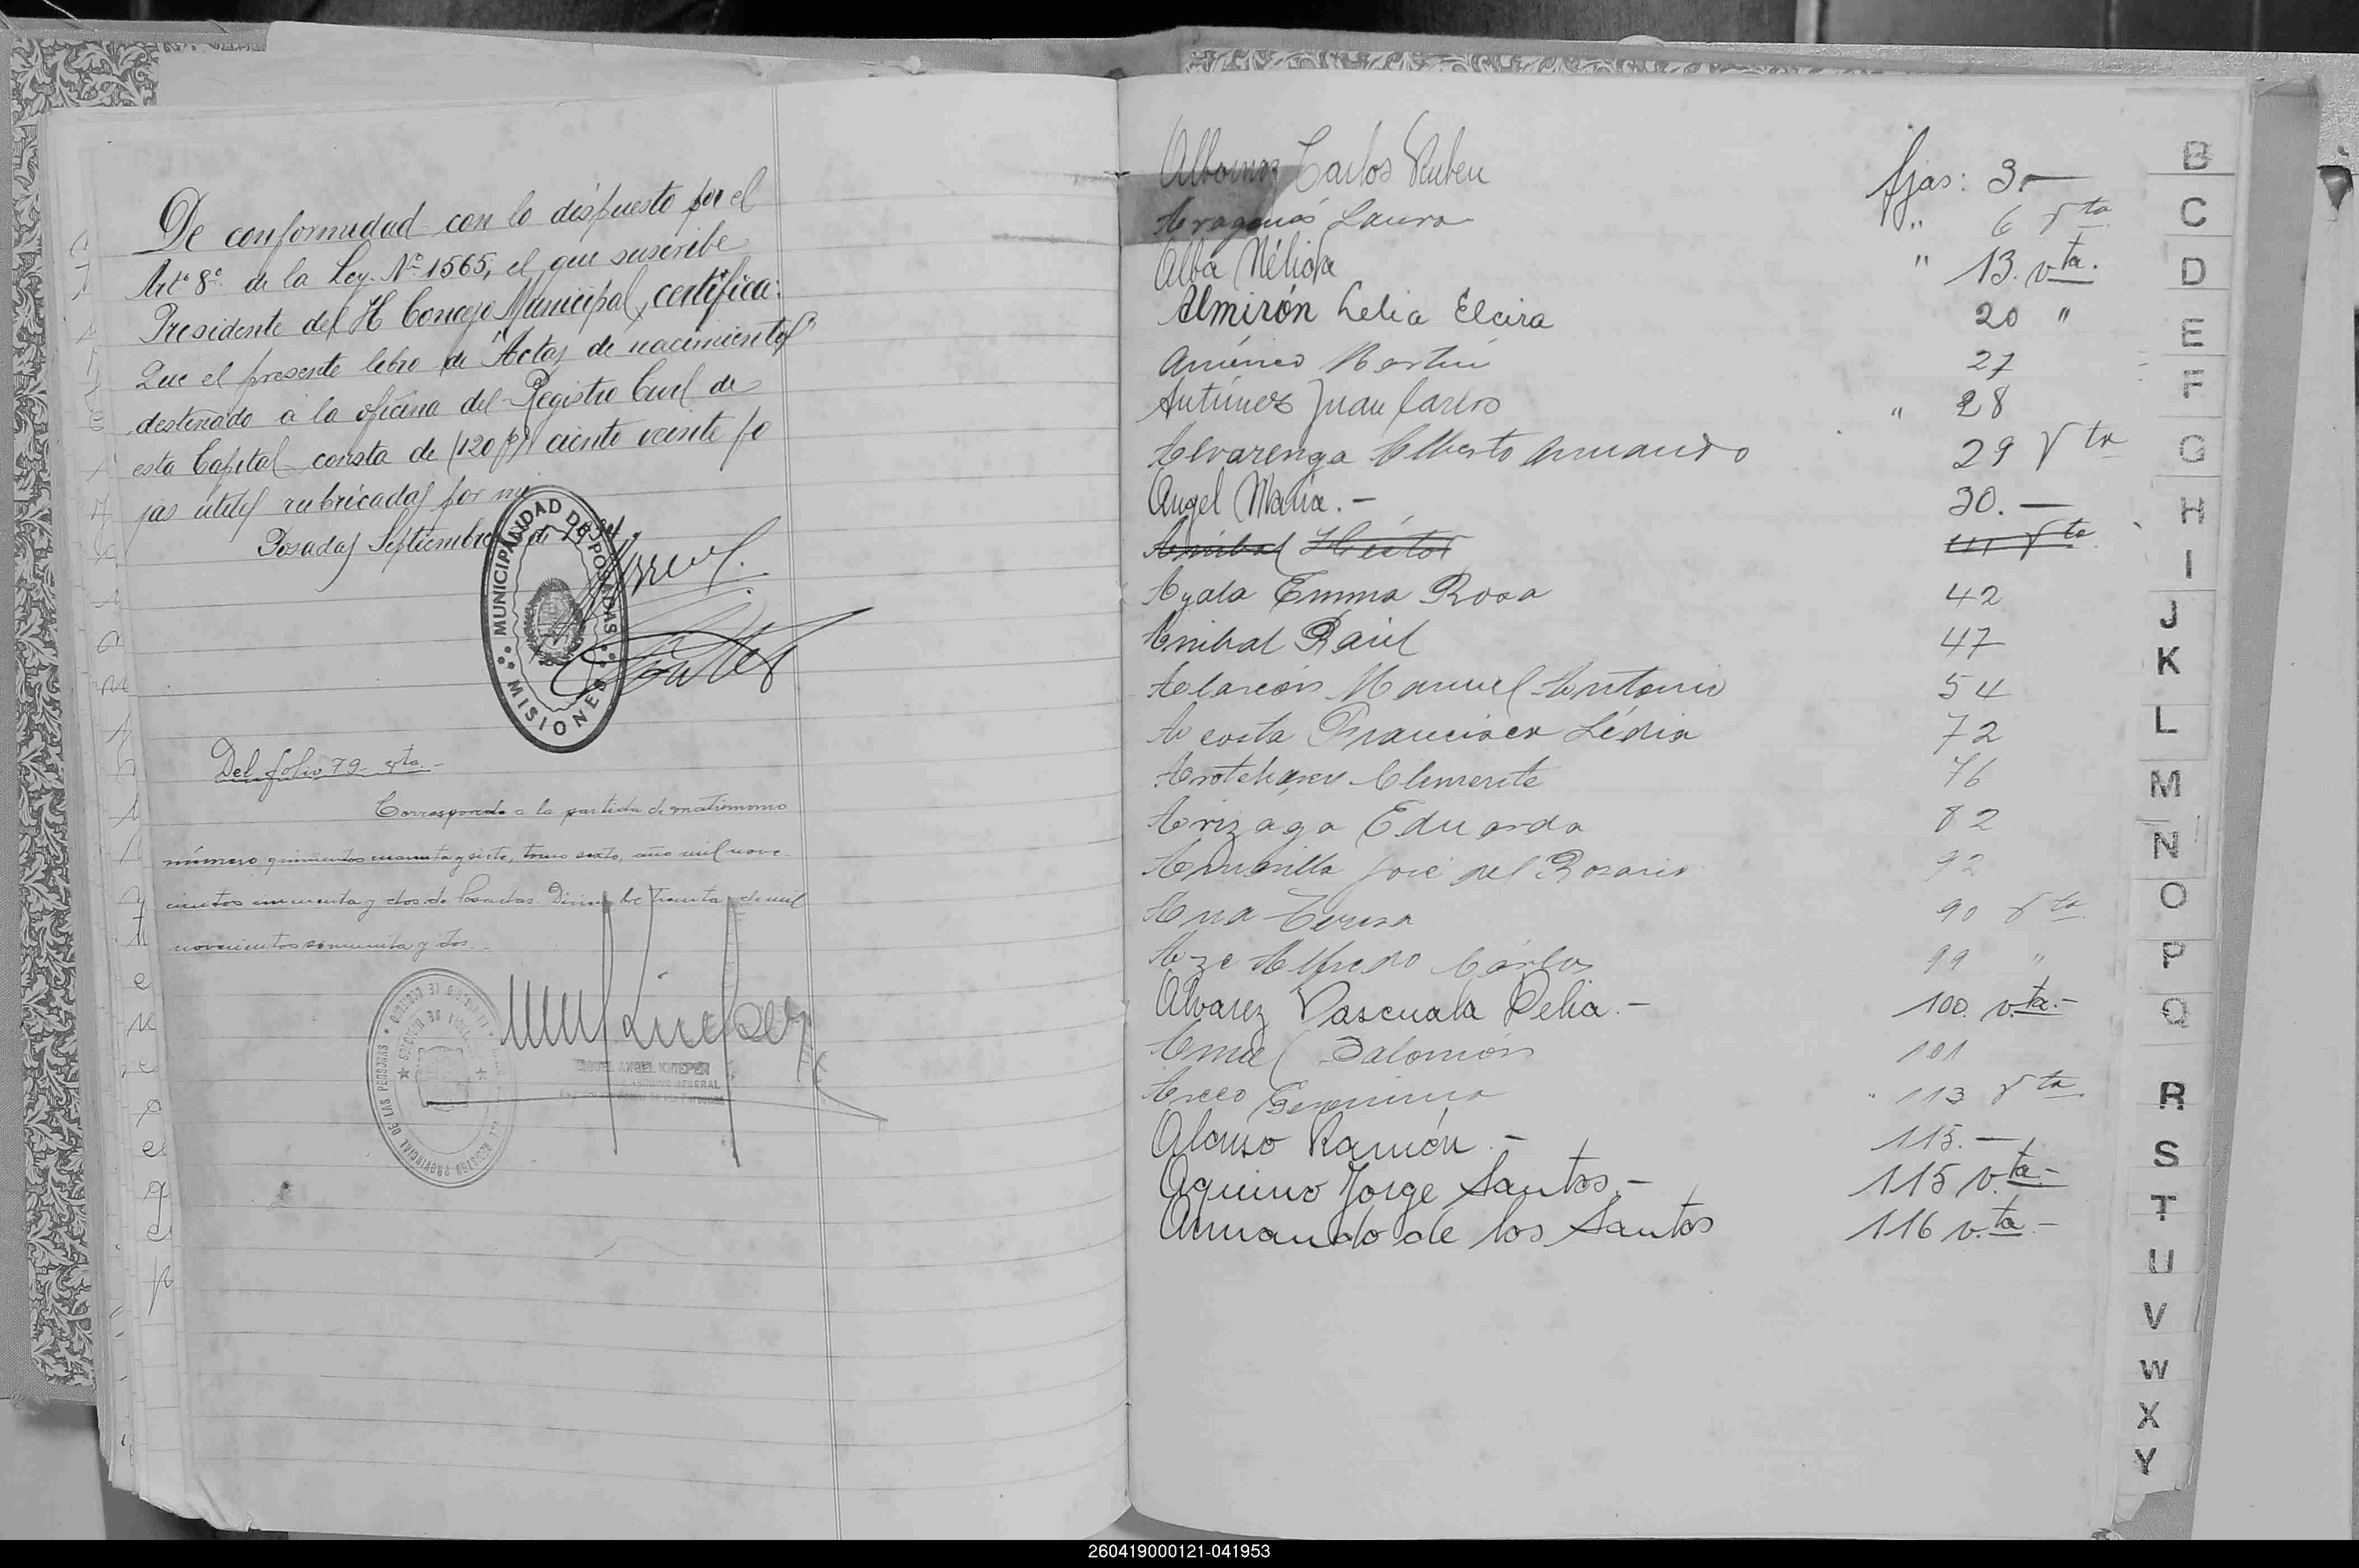 De conformidad con lo dispuesto por el
Art. 8º de la Ley Nº 1565, el que suscribe
Presidente del H Concejo Municipal, certifica:
Que el presente libro de "Actas de nacimientos"
destinado a la oficina del Registro Civil de
esta Capital consta de (120 fs) ciento veinte fo
jas útiles rubricadas por mi
Posadas Septiembre de
MUNICIPALIDAD DE POSADAS
MISIONES
Del folio 79 vta.-
Corresponde a la partida de matrimonio
número quinientos cuarenta y siete, tomo sexto, año mil nove-
cientos cincuenta y dos de Posadas. Diciembre treinta de mil
novecientos y dos.
REGISTRO PROVINCIAL DE LAS PERSONAS
MIGUEL ANGEL
ARCHIVO GENERAL
Albornoz Carlos Ruben fjas: 3.—
Laura " 6 vta
Alba Nélida " 13. vta.
Almirón Lelia Elcira 20 "
Martín 27
Antúnez Juan Carlos " 28
Alvarenga Alberto Armando 29 vta
Angel María.- 30.—
Anibal Héctor vta
Ayala Emma Rosa 42
Anibal Raúl 47
Alarcón Manuel Antonio 54
Acosta Francisca Lidia 72
Clemente 76
Arizaga Eduarda 82
José del Rosario 92
Ana Teresa 90 vta.
Aze Alfredo Cárlos 99 "
Alvarez Pascuala Delia.- 100. vta.-
Salomón 101
Arceo Geronima " 113 vta.
Alonso Ramón.- 115.—
Aquino Jorge Santos.- 115 vta.-
Armando de los Santos 116 vta.-
B
C
D
E
F
G
H
I
J
K
L
M
N
O
P
Q
R
S
T
U
V
W
X
Y
260419000121-041953